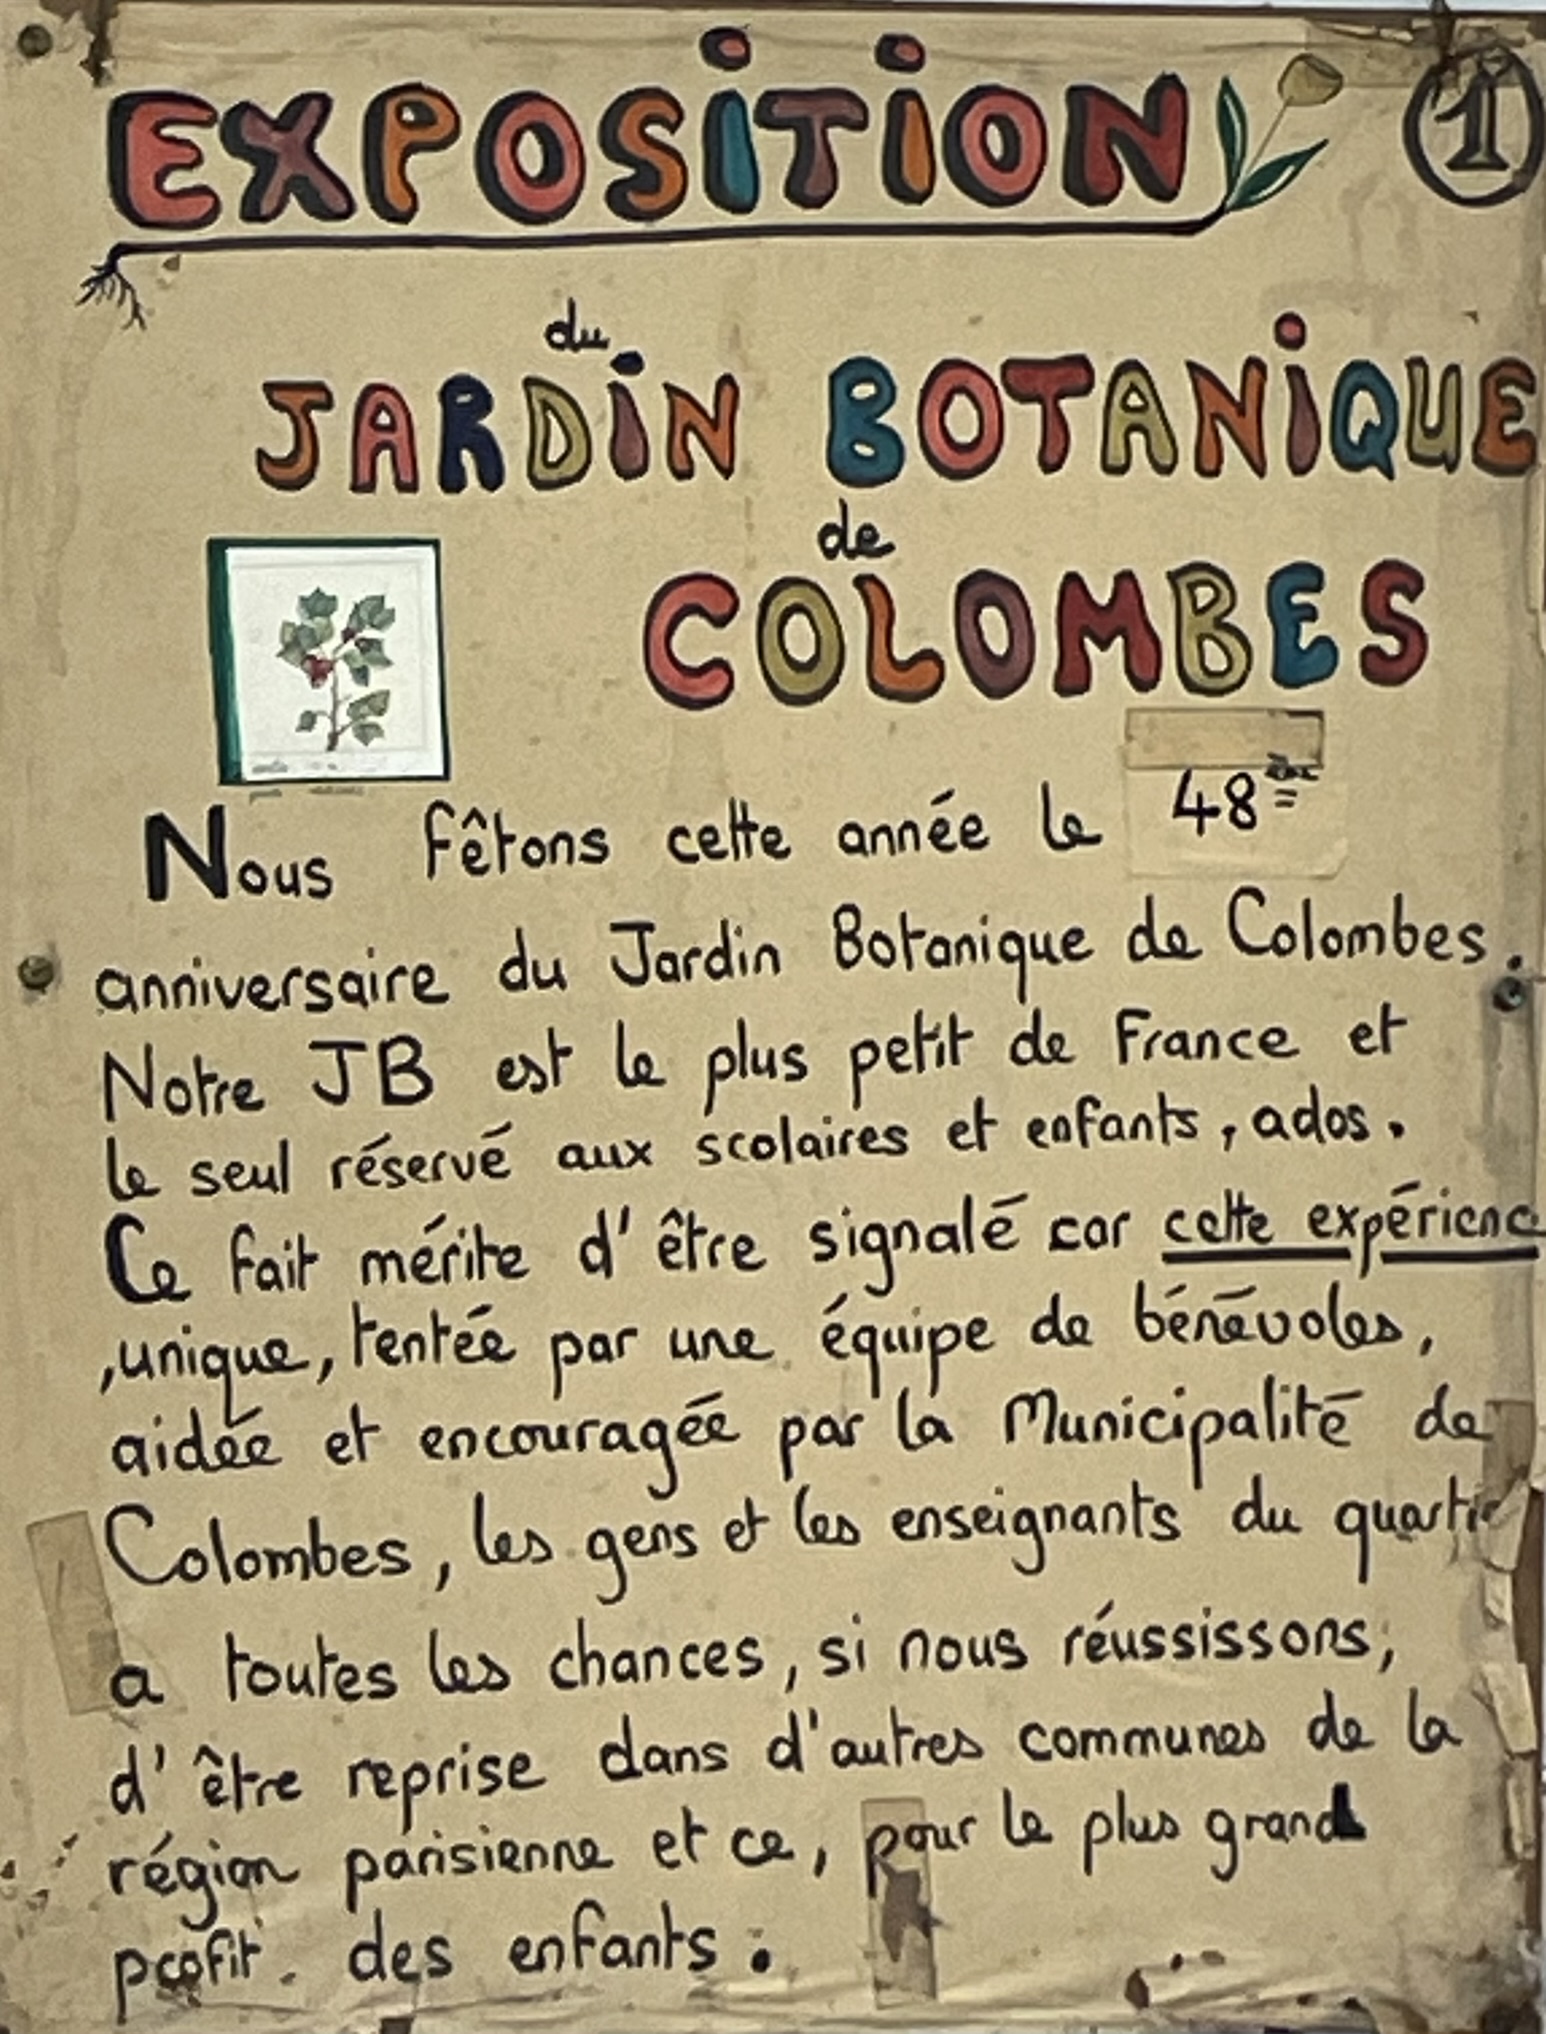 EXPOSITION
1
du
JARDIN BOTANIQUE
de
COLOMBES
Nous fêtons cette année le 48ème
anniversaire du Jardin Botanique de Colombes.
Notre JB est le plus petit de France et
le seul réservé aux scolaires et enfants, ados.
Ce fait mérite d'être signalé car cette expérienc
,unique, tentée par une équipe de bénévoles,
aidée et encouragée par la Municipalité de
Colombes, les gens et les enseignants du quartie
a toutes les chances, si nous réussissons,
d'être reprise dans d'autres communes de la
région parisienne et ce, pour le plus grand
profit. des enfants.